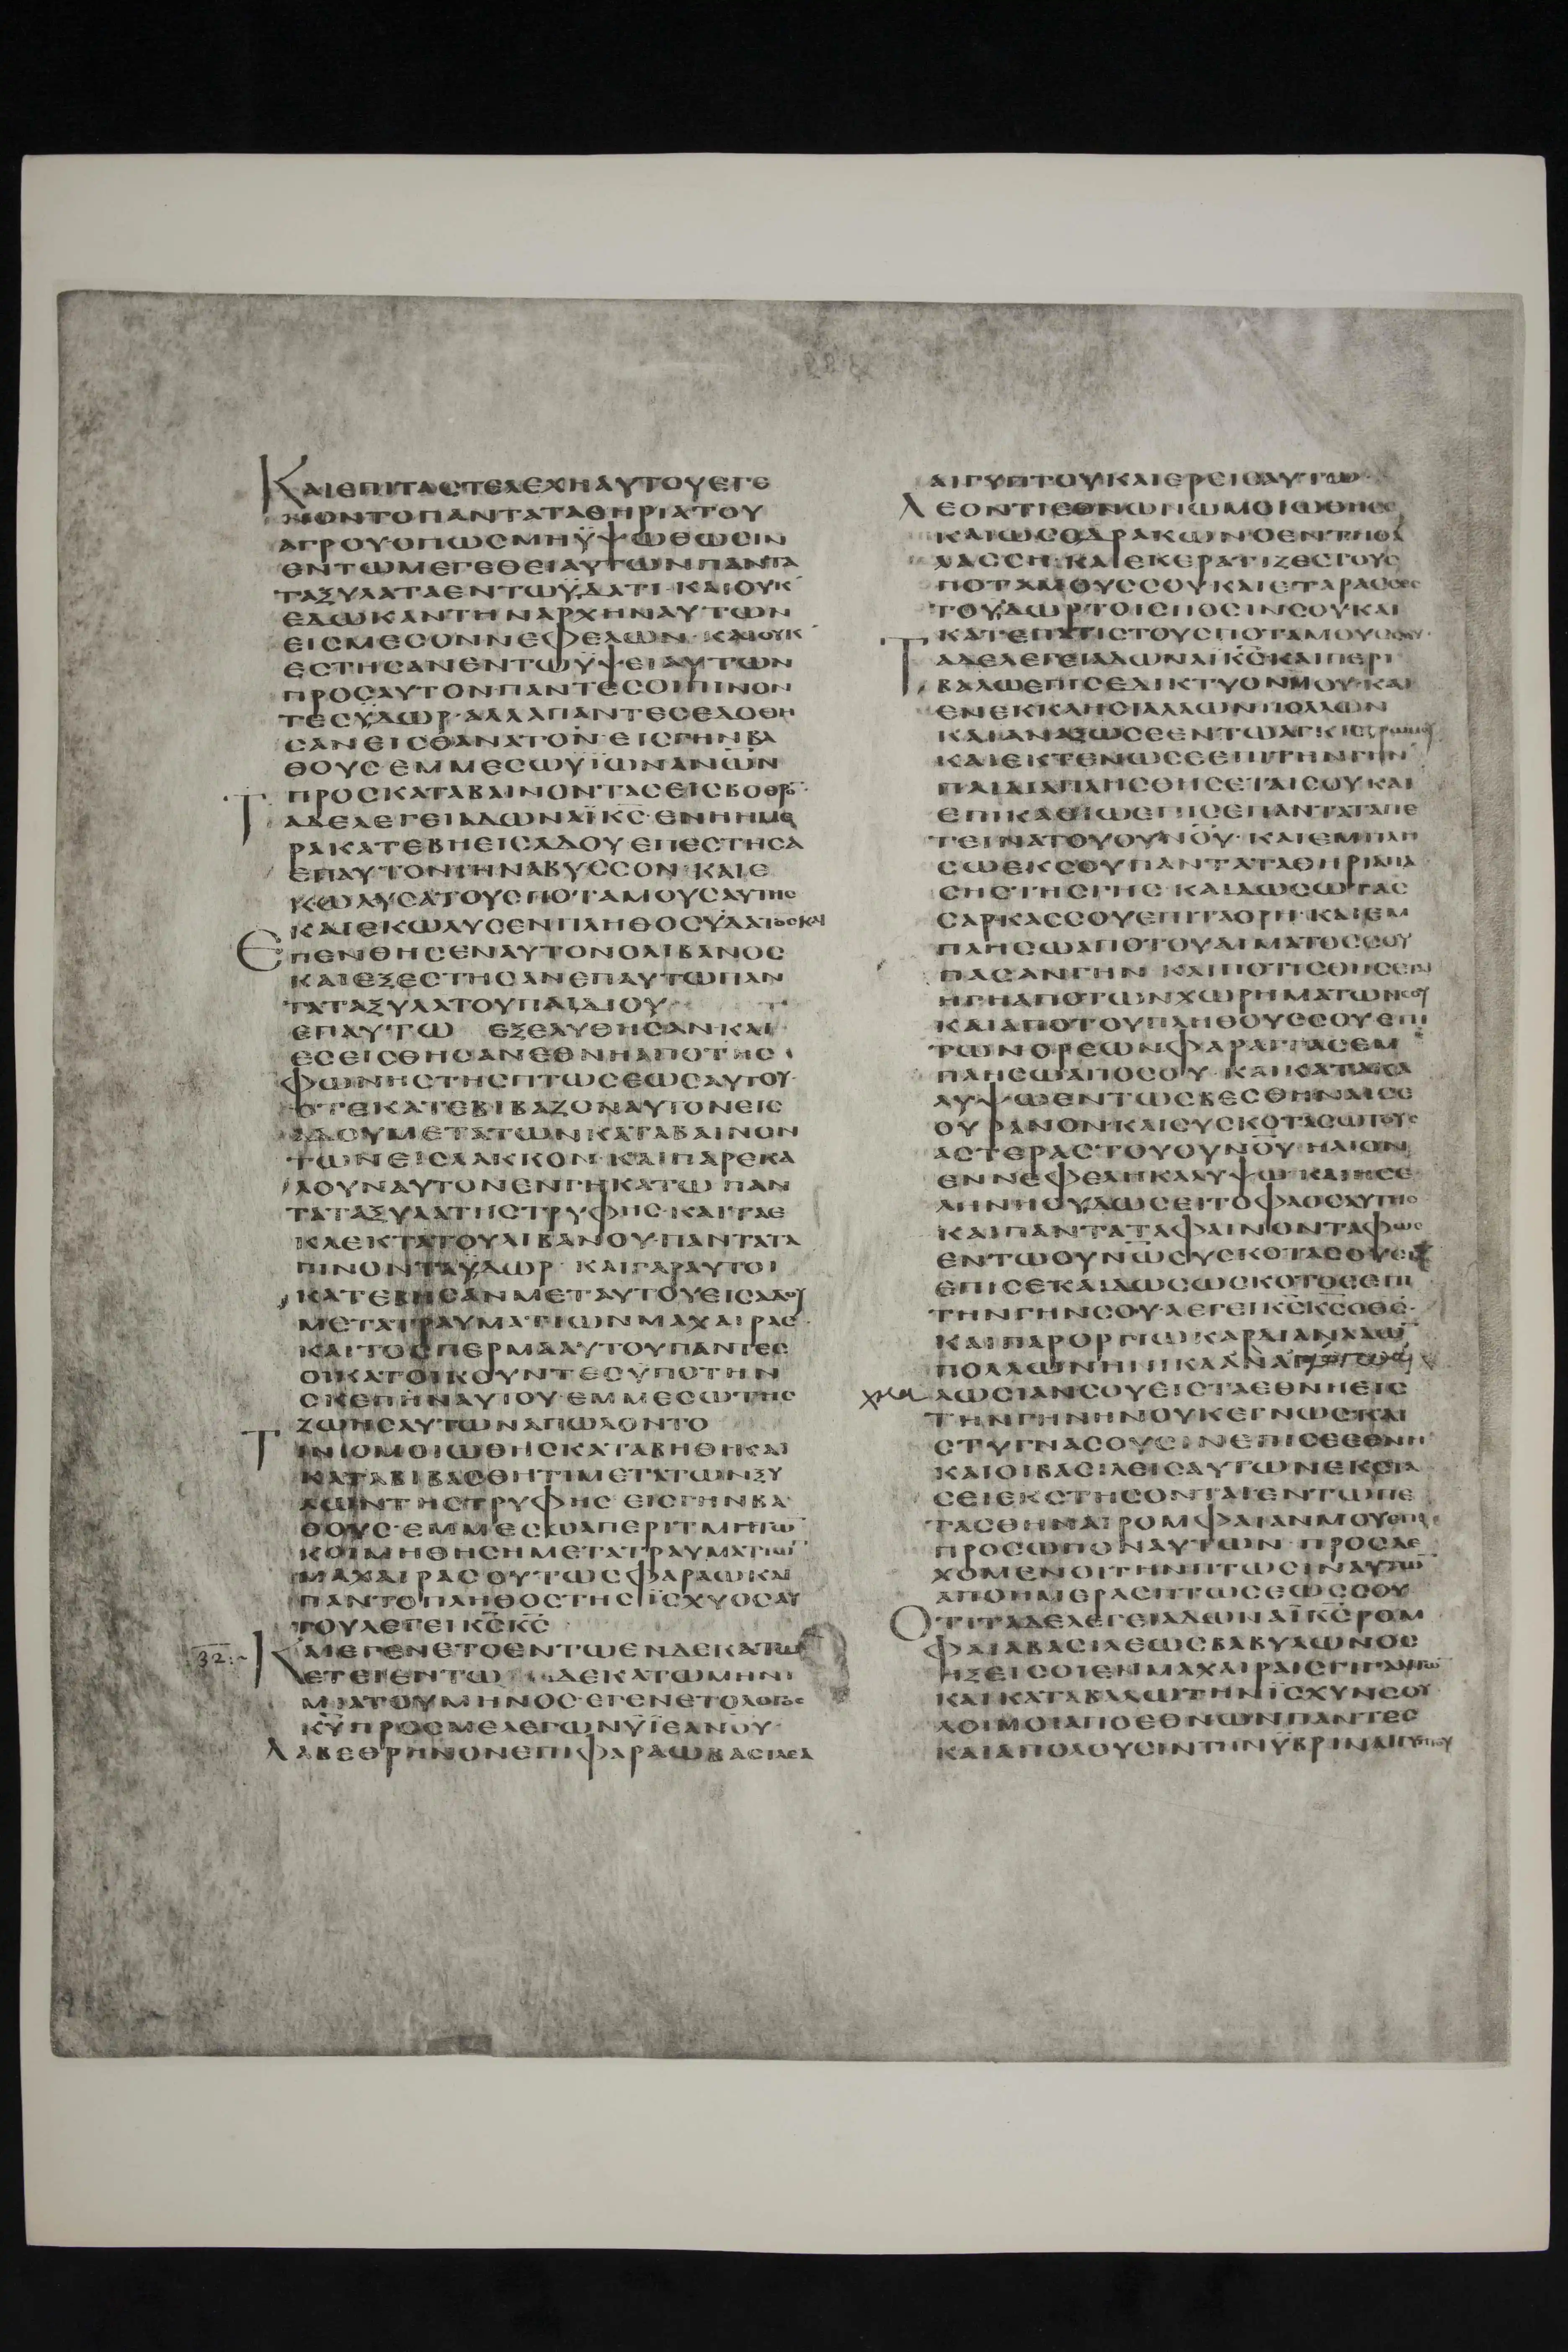 ΚΑΙΕΠΙΤΑΣΤΕΛΕΧΗΑΥΤΟΥΕΓΕ
ΝΟΝΤΟΠΑΝΤΑΤΑΘΗΡΙΑΤΟΥ
ΑΓΡΟΥΟΠΩΣΜΗΫΨΩΘΩΣΙΝ
ΕΝΤΩΜΕΓΕΘΕΙΑΥΤΩΝΠΑΝΤΑ
ΤΑΞΥΛΑΤΑΕΝΤΩΫΔΑΤΙ·ΚΑΙΟΥΚ
ΕΔΩΚΑΝΤΗΝΑΡΧΗΝΑΥΤΩΝ
ΕΙΣΜΕΣΟΝΝΕΦΕΛΩΝ·ΚΑΙΟΥΚ
ΕΣΤΗΣΑΝΕΝΤΩΫΨΕΙΑΥΤΩΝ
ΠΡΟΣΑΥΤΟΝΠΑΝΤΕΣΟΙΠΙΝΟΝ
ΤΕΣΫΔΩΡ·ΑΛΛΑΠΑΝΤΕΣΕΔΟΘΗ
ΣΑΝΕΙΣΘΑΝΑΤΟΝ·ΕΙΣΓΗΝΒΑ
ΘΟΥΣ·ΕΜΜΕΣΩΫΪΩΝΑΝΩ̅Ν
ΠΡΟΣΚΑΤΑΒΑΙΝΟΝΤΑΣΕΙΣΒΟΘΡΟ̅·
ΤΑΔΕΛΕΓΕΙΑΔΩΝΑΪΚ̅Σ̅·ΕΝΗΗΜΕ
ΡΑΚΑΤΕΒΗΕΙΣΑΔΟΥΕΠΕΣΤΗΣΑ
ΕΠΑΥΤΟΝΤΗΝΑΒΥΣΣΟΝ·ΚΑΙΕ
ΚΩΛΥΣΑΤΟΥΣΠΟΤΑΜΟΥΣΑΥΤΗΣ
ΚΑΙΕΚΩΛΥΣΕΝΠΛΗΘΟΣΫΔΑΤΟΣΚΑΙ
ΕΠΕΝΘΗΣΕΝΑΥΤΟΝΟΛΙΒΑΝΟΣ
ΚΑΙΕΞΕΣΤΗΣΑΝΕΠΑΥΤΩΠΑΝ
ΤΑΤΑΞΥΛΑΤΟΥΠΑΙΔΙΟΥ
ΕΠΑΥΤΩ ΕΞΕΛΥΘΗΣΑΝΚΑΙ
ΕΣΕΙΣΘΗΣΑΝΕΘΝΗΑΠΟΤΗΣ
ΦΩΝΗΣΤΗΣΠΤΩΣΕΩΣΑΥΤΟΥ·
ΟΤΕΚΑΤΕΒΙΒΑΖΟΝΑΥΤΟΝΕΙΣ
ΑΔΟΥΜΕΤΑΤΩΝΚΑΤΑΒΑΙΝΟΝ
ΤΩΝΕΙΣΛΑΚΚΟΝ·ΚΑΙΠΑΡΕΚΑ
ΛΟΥΝΑΥΤΟΝΕΝΓΗΚΑΤΩΠΑΝ
ΤΑΤΑΞΥΛΑΤΗΣΤΡΥΦΗΣ·ΚΑΙΤΑΕ
ΚΛΕΚΤΑΤΟΥΛΙΒΑΝΟΥ·ΠΑΝΤΑΤΑ
ΠΙΝΟΝΤΑΫΔΩΡ·ΚΑΙΓΑΡΑΥΤΟΙ
ΚΑΤΕΒΗΣΑΝΜΕΤΑΥΤΟΥΕΙΣΑΔΟΥ
ΜΕΤΑΤΡΑΥΜΑΤΙΩΝΜΑΧΑΙΡΑΣ
ΚΑΙΤΟΣΠΕΡΜΑΑΥΤΟΥΠΑΝΤΕΣ
ΟΙΚΑΤΟΙΚΟΥΝΤΕΣΫΠΟΤΗΝ
ΣΚΕΠΗΝΑΥΤΟΥ·ΕΜΜΕΣΩΤΗΣ
ΖΩΗΣΑΥΤΩΝΑΠΩΛΟΝΤΟ
ΤΙΝΙΟΜΟΙΩΘΗΣΚΑΤΑΒΗΘΙΚΑΙ
ΚΑΤΑΒΙΒΑΣΘΗΤΙΜΕΤΑΤΩΝΞΥ
ΛΩΝΤΗΣΤΡΥΦΗΣ·ΕΙΣΓΗΝΒΑ
ΘΟΥΣ·ΕΜΜΕΣΩΑΠΕΡΙΤΜΗΤΩ̅
ΚΟΙΜΗΘΗΣΗΜΕΤΑΤΡΑΥΜΑΤΙΩ̅
ΜΑΧΑΙΡΑΣΟΥΤΩΣΦΑΡΑΩΚΑΙ
ΠΑΝΤΟΠΛΗΘΟΣΤΗΣΪΣΧΥΟΣΑΥ
ΤΟΥΛΕΓΕΙΚ̅Σ̅Κ̅Σ̅
32
ΚΑΙΕΓΕΝΕΤΟΕΝΤΩΕΝΔΕΚΑΤΩ
ΕΤΕΙΕΝΤΩ ΔΕΚΑΤΩΜΗΝΙ
ΜΙΑΤΟΥΜΗΝΟΣ·ΕΓΕΝΕΤΟΛΟΓΟΣ
Κ̅Υ̅ΠΡΟΣΜΕΛΕΓΩΝΫΪΕΑΝΟΥ·
ΛΑΒΕΘΡΗΝΟΝΕΠΙΦΑΡΑΩΒΑΣΙΛΕΑ
ΑΙΓΥΠΤΟΥΚΑΙΕΡΕΙΣΑΥΤΩ·
ΛΕΟΝΤΙΕΘΝΩΝΩΜΟΙΩΘΗΣ
ΚΑΙΩΣΟΔΡΑΚΩΝΟΕΝΤΗΘΑ
ΛΑΣΣΗ·ΚΑΙΕΚΕΡΑΤΙΖΕΣΤΟΥΣ
ΠΟΤΑΜΟΥΣΣΟΥΚΑΙΕΤΑΡΑΣΣΕΣ
ΤΟΫΔΩΡΤΟΙΣΠΟΣΙΝΣΟΥΚΑΙ
ΚΑΤΕΠΑΤΙΣΤΟΥΣΠΟΤΑΜΟΥΣΣΟΥ·
ΤΑΔΕΛΕΓΕΙΑΔΩΝΑΪΚ̅Σ̅·ΚΑΙΠΕΡΙ
ΒΑΛΩΕΠΙΣΕΔΙΚΤΥΟΝΜΟΥ·ΚΑΙ
ΕΝΕΚΚΛΗΣΙΑΛΑΩΝΠΟΛΛΩΝ
ΚΑΙΑΝΑΞΩΣΕΕΝΤΩΑΓΚΙΣΤΡΩΜΟΥ
ΚΑΙΕΚΤΕΝΩΣΕΕΠΙΤΗΝΓΗΝ
ΠΑΙΔΙΑΠΛΗΣΘΗΣΕΤΑΙΣΟΥΚΑΙ
ΕΠΙΚΑΘΙΩΕΠΙΣΕΠΑΝΤΑΤΑΠΕ
ΤΕΙΝΑΤΟΥΟΥΝΟΥ·ΚΑΙΕΜΠΛΗ
ΣΩΕΚΣΟΥΠΑΝΤΑΤΑΘΗΡΙΑΠΑ
ΣΗΣΤΗΣΓΗΣ·ΚΑΙΔΩΣΩΤΑΣ
ΣΑΡΚΑΣΣΟΥΕΠΙΤΑΟΡΗ·ΚΑΙΕΜ
ΠΛΗΣΩΑΠΟΤΟΥΑΙΜΑΤΟΣΣΟΥ
ΠΑΣΑΝΓΗΝ·ΚΑΙΠΟΤΙΣΘΗΣΕΤΑΙ
ΗΓΗΑΠΟΤΩΝΧΩΡΗΜΑΤΩΝΣΟΥ
ΚΑΙΑΠΟΤΟΥΠΛΗΘΟΥΣΣΟΥΕΠΙ
ΤΩΝΟΡΕΩΝΦΑΡΑΓΓΑΣΕΜ
ΠΛΗΣΩΑΠΟΣΟΥ·ΚΑΙΚΑΤΑΚΑ
ΛΥΨΩΕΝΤΩΣΒΕΣΘΗΝΑΙΣΕ
ΟΥΡΑΝΟΝ·ΚΑΙΣΥΣΚΟΤΑΣΩΤΟΥΣ
ΑΣΤΕΡΑΣΤΟΥΟΥΝΟΥ·ΗΛΙΟΝ
ΕΝΝΕΦΕΛΗΚΑΛΥΨΩ·ΚΑΙΗΣΕ
ΛΗΝΗΟΥΔΩΣΕΙΤΟΦΑΟΣΑΥΤΗΣ
ΚΑΙΠΑΝΤΑΤΑΦΑΙΝΟΝΤΑΦΩΣ
ΕΝΤΩΟΥΝΩΣΥΣΚΟΤΑΣΟΥΣΙΝ
ΕΠΙΣΕΚΑΙΔΩΣΩΣΚΟΤΟΣΕΠΙ
ΤΗΝΓΗΝΣΟΥ·ΛΕΓΕΙΚ̅Σ̅Κ̅Σ̅ΟΘΣ·
ΚΑΙΠΑΡΟΡΓΙΩΚΑΡΔΙΑΝΛΑΩ̅
ΠΟΛΛΩΝΗΝΙΚΑΑΝΑΓΩ
ΛΩΣΙΑΝΣΟΥΕΙΣΤΑΕΘΝΗΕΙΣ
ΤΗΝΓΗΝΗΝΟΥΚΕΓΝΩΣΚΑΙ
ΣΤΥΓΝΑΣΟΥΣΙΝΕΠΙΣΕΕΘΝΗ
ΚΑΙΟΙΒΑΣΙΛΕΙΣΑΥΤΩΝΕΚΣΤΑ
ΣΕΙΕΚΣΤΗΣΟΝΤΑΙΕΝΤΩΠΕ
ΤΑΣΘΗΝΑΙΡΟΜΦΑΙΑΝΜΟΥΕΠΙ
ΠΡΟΣΩΠΟΝΑΥΤΩΝ·ΠΡΟΣΔΕ
ΧΟΜΕΝΟΙΤΗΝΠΤΩΣΙΝΑΥΤΩ̅
ΑΠΟΗΜΕΡΑΣΠΤΩΣΕΩΣΣΟΥ
ΟΤΙΤΑΔΕΛΕΓΕΙΑΔΩΝΑΪΚ̅Σ̅ΡΟΜ
ΦΑΙΑΒΑΣΙΛΕΩΣΒΑΒΥΛΩΝΟΣ
ΗΞΕΙΣΟΙΕΝΜΑΧΑΙΡΑΙΣΓΙΓΑΝΤΩ̅
ΚΑΙΚΑΤΑΒΑΛΩΤΗΝΪΣΧΥΝΣΟΥ
ΛΟΙΜΟΙΑΠΟΕΘΝΩΝΠΑΝΤΕΣ
ΚΑΙΑΠΟΛΟΥΣΙΝΤΗΝΫΒΡΙΝΑΙΓΥΠΤΟΥ